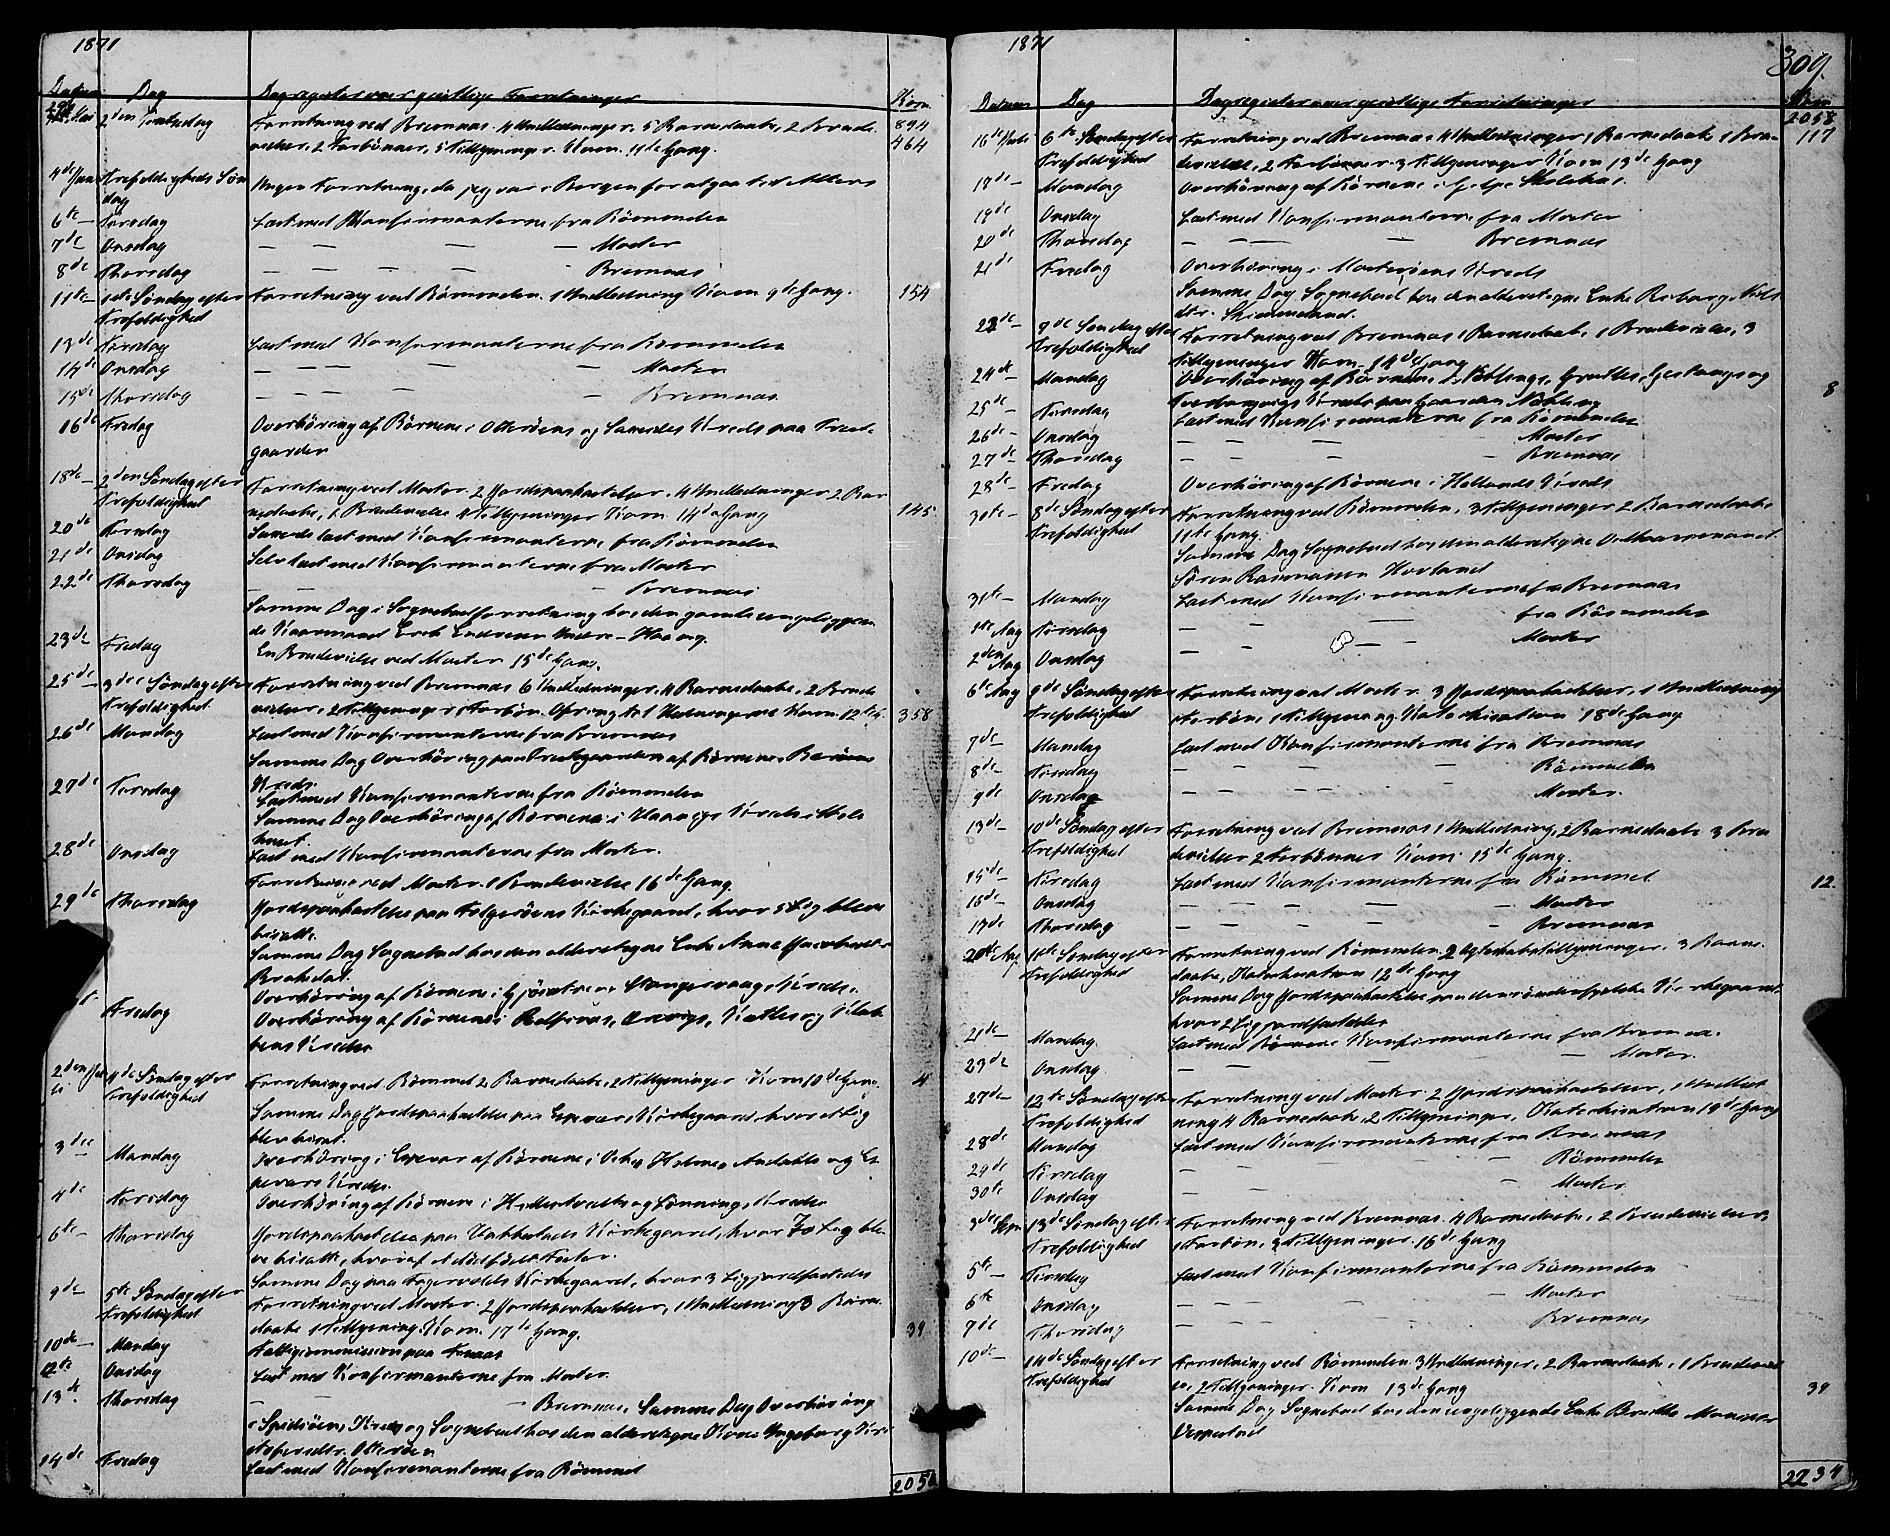 1871
Datum Dag Dagregister over geistlige Forretninger Kom.
29de Mai 2den Pintsedag Forretning ved Bremnæs. 4 Indledninger. 5 Barnedaabe, 2 Brude- 894
vielser, 2 Forbønner, 5 Tillysninger. Kom. 11te Gang. 464
4de Juni Trefoldigheds Søn Ingen Forretning, da jeg var i Bergen for at gaa til Alters
dag
6te – Tirsdag Læst med Konfirmanterne fra Rømmelen
7de Onsdag — — — — Moster
8de Thorsdag — — — — Bremnæs
11te – 1ste Søndag efter Forretning ved Rømmelen. 1 Indledning Kom 9de Gang. 154
Trefoldighed
13de Tirsdag Læst med Konfirmanterne fra Rømmelen
14de Onsdag — — — — Moster
15de Thorsdag — — — — Bremnæs
16de Fredag Overhøring af Børnene i Otterøens og Kreds paa Præste-
gaarden
18de – 2den Søndag efter Forretning ved Moster. 2 Jordspaakastelser. 4 Indledninger 2 Bar
Trefoldighed nedaabe, 1 Brudevielse 4 Tillysninger Kom 14de Gang 145
20de Tirsdag læst med Konfirmanterne fra Rømmelen
21de Onsdag Selv læst med Konfirmanterne fra Moster
22de Thorsdag — — — Bremnæs
Samme Dag i Sognebudforretning hos den gamle sengeliggen-
de Kaarmand Erik Endresen Indre-Haavig.
23de Fredag En Brudevielse ved Moster 15de Gang.
25de – 3die Søndag efter Forretning ved Bremnæs 6 Indledninger. 4 Barnedaabe, 2 Brude
Trefoldighed vielser, 2 Tillysninger 1 Forbøn. Ofring til Kom. 12te G. 358
26de Mandag Læst med Konfirmanterne fra Bremnæs
Samme Dag Overhøring paa Præstegaarden af Børnene i
Kreds.
27de Tirsdag Læst med Konfirmanterne fra Rømmelen
Samme Dag Overhøring af Børnene i Haavigs Kreds i Skole
huset.
28de Onsdag Læst med Konfirmanterne fra Moster.
Forretning ved Moster. 1 Brudevielse 16de Gang.
29de Thorsdag Jordspaakastelse paa Folgerøens Kirkegaard, hvor 5 Lig bleve
bisatte.
Samme Dag Sognebud hos den alderstegne Enke Anne
Brækdal.
Fredag Overhøring af Børnene i Gjøsøens Stangesvaag Kreds.
Overhøring af Børnene i Kreds
2den Juli 4de Søndag efter Forretning ved Rømmel 2 Barnedaabe, 2 Tillysninger. Kom 10de Gang. 4
Trefoldighed Samme Dag Jordspaakastelse paa Espevær Kirkegaard, hvor et Lig
blev bisat.
3die Mandag Overhøring i Espevær af Børnene i og Es
pevær Kreds.
4de Tirsdag Overhøring af Børnene i og Kreds
6te – Thorsdag Jordspaakastelse paa Kirkegaard, hvor 7 Lig ble-
ve bisatte, hvoraf et dødfødt Foster.
Samme Dag paa Kirkegaard, hvor 3 Lig jordfæstedes
9de – 5te Søndag efter Forretning ved Moster. 2 Jordspaakastelser, 1 Indledning 3 Barne-
Trefoldighed daabe 1 Tillysning. Kom. 17de Gang. 39
10de – Mandag Fattigkommission paa
12te Onsdag Læst med Konfirmanterne fra Moster.
13de. Thorsdag — — Bremnæs. Samme Dag Overhøring
i Kreds og Sognebud hos den alderstegne Kone Ingeborg Kri
Otterøen
14de Fredag Læst med Konfirmanterne fra Rømmel
2058
1871 309.
Datum Dag Dagregister over geistlige Forretninger Kom
2058
16de Juli 6te Søndag efter Forretning ved Bremnæs 4 Indledninger 1 Barnedaab 1 Bru- 117
Trefoldighed devielse, 2 Forbønner. 3 Tillysninger Kom 13de Gang
18de – Mandag Overhøring af Børnene i Skolehus.
19de Onsdag Læst med Konfirmanterne fra Moster
20de Thorsdag — — — Bremnæs
21de Fredag Overhøring i Mosterøens Kreds
Samme Dag Sognebud hos den alderstegne Enke Niels
dtr.
22de – 7de Søndag efter Forretning ved Bremnæs 1 Barnedaab, 1 Brudevielse, 3
Trefoldighed Tillysninger Kom. 14de Gang
24de – Mandag Overhøring af Børnene i og 8
Kreds paa Gaarden
25de – Tirsdag Læst med Konfirmanterne fra Rømmelen
26de – Onsdag — — — Moster
27de – Thorsdag — — — Bremnæs
28de – Fredag Overhøring af Børnene i Hollands Kreds
30te – 8de Søndag efter Forretning ved Rømmelen, 3 Tillysninger 2 Barnedaabe
Trefoldighed 11te Gang.
Samme Dag Sognebud hos den alderstegne
Søren Rasmussen Hovland
31te – Mandag Læst med Konfirmanterne fra Bremnæs
1ste Aug Tirsdag — — — fra Rømmelen
2den Aug Onsdag — — — Moster
6te Aug 9de Søndag efter Forretning ved Moster. 3 Jordspaakastelser, 1 Indledning
Trefoldighed 1 Forbøn, 1 Tillysning. Katechisation 18de Gang
7de – Mandag Læst med Konfirmanterne fra Bremnæs
8de – Tirsdag — — — — Rømmelen
9de Onsdag — — — Moster.
13de – 10de Søndag efter Forretning ved Bremnæs 1 Indledning, 2 Barnedaabe 3 Bru
Trefoldighed devielser 2 Forbønner Kom 15de Gang.
15de – Tirsdag Læst med Konfirmanterne fra Rømmel 12.
16de – Onsdag — — — — Moster
17de Thorsdag — — — — Bremnæs
20de Aug 11te Søndag efter Forretning ved Rømmelen. 2 tillysninger. 3 Barne-
Trefoldighed daabe, Katechisation 12te Gang
Samme Dag Jordspaakastelse paa Kirkegaard.
hvor 2 Lig jordfæstedes
21de – Mandag Læst med Konfirmanterne fra Bremnæs.
23de Onsdag — — — — Moster.
27de – 12te Søndag efter Forretning ved Moster. 2 Jordspaakastelser, 1 Indled
Trefoldighed ning 4 Barnedaabe. 2 Tillysninger, Katechisation 19de Gang
28de Mandag Læst med Konfirmanterne fra Bremnæs
29de Tirsdag — — — Rømmelen
30te Onsdag — — — Moster
3die Sept 13de Søndag efter Forretning ved Bremnæs. 4 Barnedaabe, 2 Brudevielser,
Trefoldighed 1 Forbøn, 3 Tillysninger. 16de Gang
5te – Tirsdag Læst med Konfirmanterne fra Rømmelen
6te Onsdag — — — — Moster
7de Thorsdag — — — — Bremnæs
10de – 14de Søndag efter Forretning ved Rømmelen. 3 Indledninger, 2 Barnedaabe, 1 Brudeviel
Trefoldighed se, 2 Tillysninger. Kom 13de Gang 39
Samme Dag Sognebud hos den sengeliggende Enke Brithe
Vespestad
2234